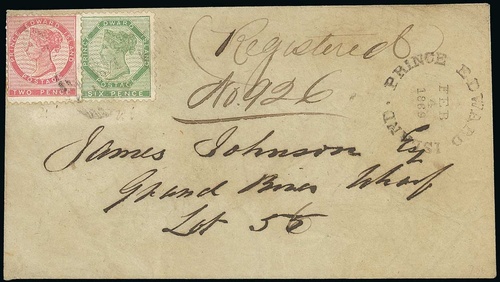 PRINCE EDWARD ISLAND
POSTAGE
TWO PENCE
PRINCE EDWARD ISLAND
POSTAGE
SIX PENCE
Registered
No. 926
PRINCE EDWARD ISLAND
FEB
1869
James Johnson Esq
Grand River Wharf
Lot 56